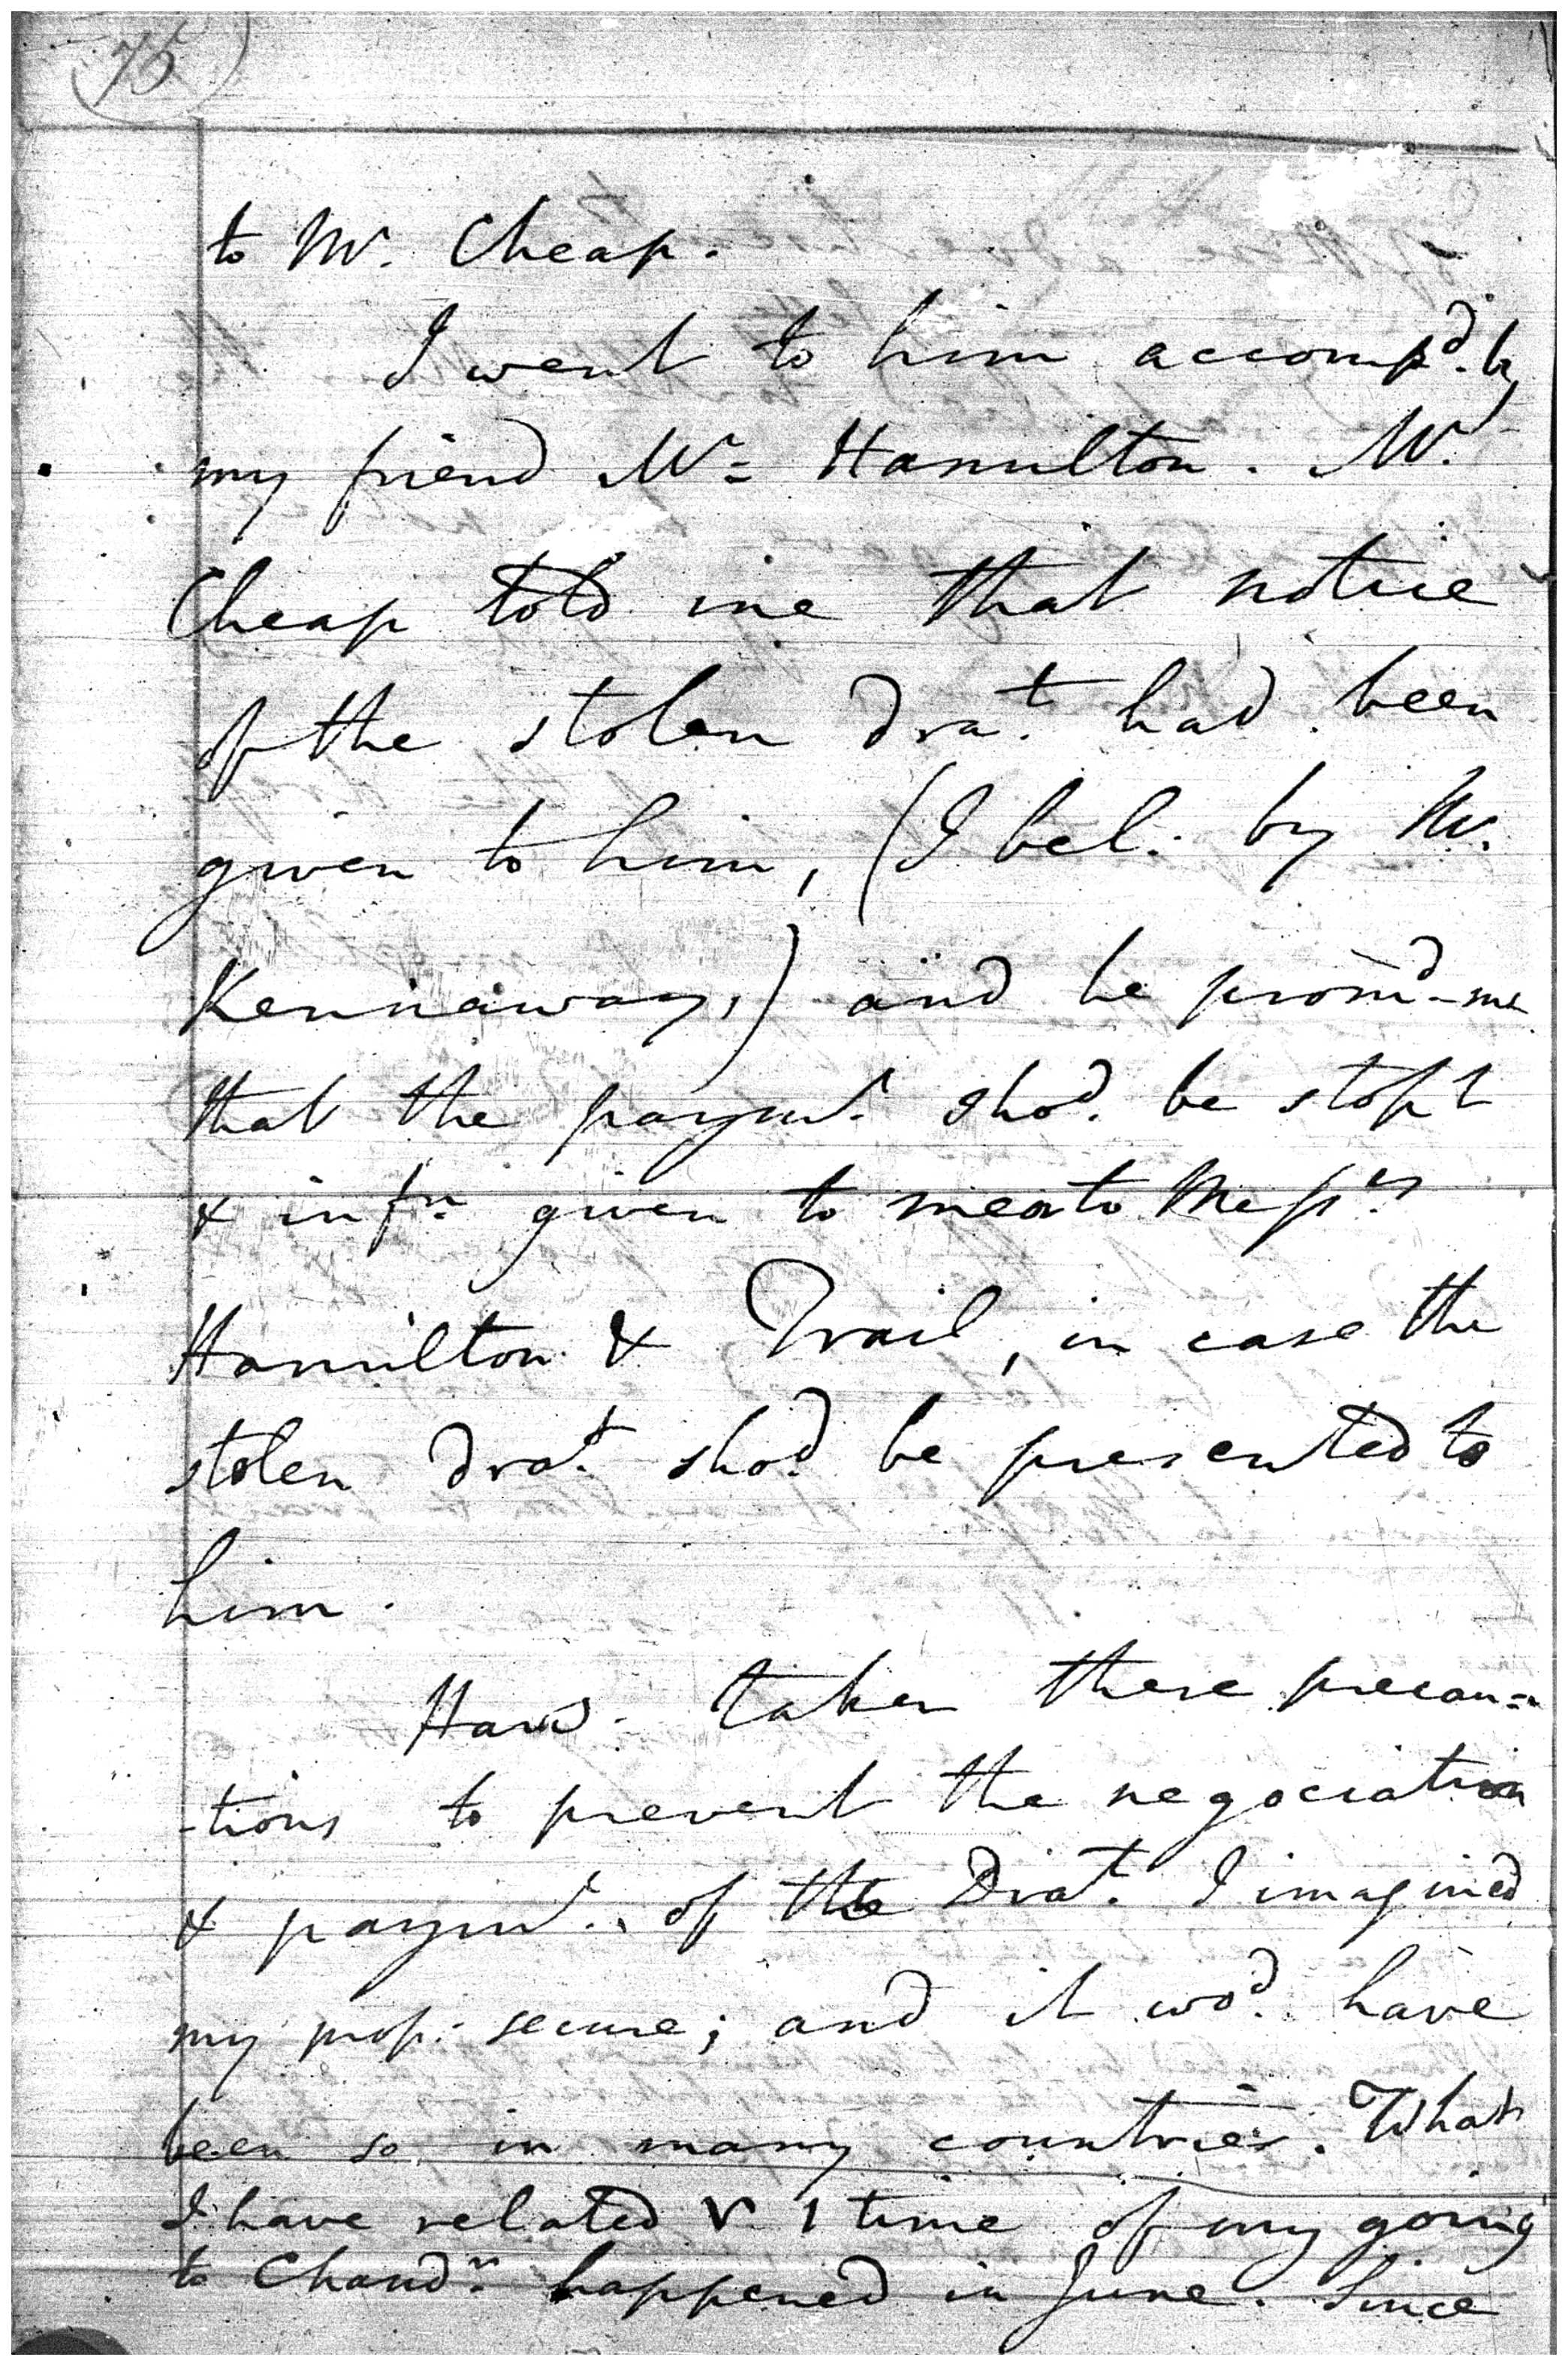 75
to Mr. Cheap.
I went to him accompd. by
my friend Mr. Hamilton. Mr.
Cheap told me that notice
of the stolen dra.t had been
given to him, (I bel. by Mr.
Kennaway,) and he promd. me
that the paymt. shod. be stopt
& infn. given to me or to Messrs.
Hamilton & Trail, in case the
stolen dra.t shod. be presented to
him.
taken these precau-
-tions to prevent the negociation
& paymt. of the Dra.t I imagined
my prop. secure; and it wod. have
been so in many countries. What
I have related time of my going
to Chandn. happened in June. Since